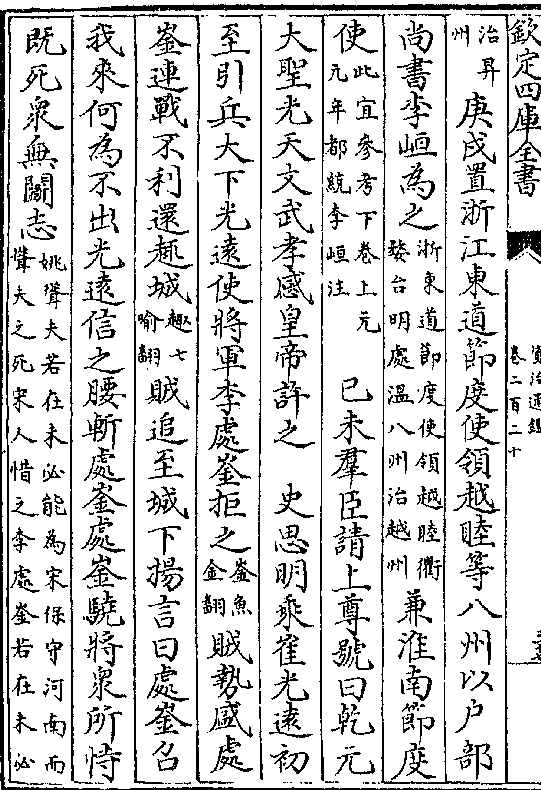 欽定四庫全書
資治通鑑
卷二百二十
治昇
州
庚戌置浙江東道節度使領越睦等八州以户部
尚書李峘為之
浙東道節度使領越睦衢
婺台明處温八州治越州
兼淮南節度
使
此宜參考下卷上元
元年都統李峘注
己未羣臣請上尊號曰乾元
大聖光天文武孝感皇帝許之 史思明乘崔光遠初
至引兵大下光遠使將軍李處崟拒之
崟魚
金翻
賊勢盛處
崟連戰不利還趣城
趣七
喻翻
賊追至城下揚言曰處崟召
我來何為不出光遠信之腰斬處崟處崟驍將衆所恃
既死衆無鬬志
姚聳夫若在未必能為宋保守河南而
聳夫之死宋人惜之李處崟若在未必